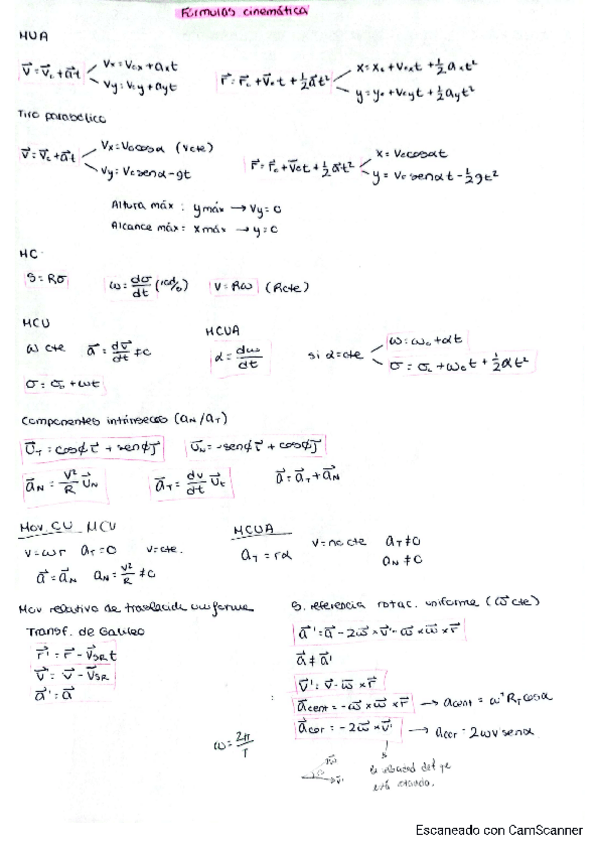 Fórmulas cinemática
MUA
v⃗ = v⃗₀ + a⃗t
Vx = V₀x + axt
Vy = V₀y + ayt
r⃗ = r⃗₀ + v⃗₀t + ½a⃗t²
x = x₀ + V₀xt + ½axt²
y = y₀ + V₀yt + ½ayt²
Tiro parabólico
v⃗ = v⃗₀ + a⃗t
Vx = V₀cosα (Vcte)
Vy = V₀senα - gt
r⃗ = r⃗₀ + v⃗₀t + ½a⃗t²
x = V₀cosαt
y = V₀senαt - ½gt²
Altura máx: ymáx → Vy = 0
Alcance máx: xmáx → y = 0
MC
S = Rσ ω = dσ/dt (rad/s) V = Rω (Rcte)
MCU
ω cte a⃗ = dv⃗/dt ≠ 0
σ = σ₀ + ωt
MCUA
α = dω/dt si α = cte
ω = ω₀ + αt
σ = σ₀ + ω₀t + ½αt²
Componentes intrínsecas (aN/aT)
U⃗T = cosϕ i⃗ + senϕ j⃗ U⃗N = -senϕ i⃗ + cosϕ j⃗
a⃗N = V²/R U⃗N a⃗T = dv/dt U⃗t a⃗ = a⃗T + a⃗N
Mov. CU MCU
v = ωr aT = 0 v = cte.
a⃗ = a⃗N aN = V²/R ≠ 0
MCUA
aT = rα v = no cte aT ≠ 0
aN ≠ 0
Mov relativo de traslación uniforme
Transf. de Galileo
r⃗' = r⃗ - v⃗SRt
v⃗' = v⃗ - v⃗SR
a⃗' = a⃗
ω = 2π/T
S. referencia rotac. uniforme (ω⃗ cte)
a⃗' = a⃗ - 2ω⃗ × v⃗' - ω⃗ × ω⃗ × r⃗
a⃗ ≠ a⃗'
v⃗' = v⃗ - ω⃗ × r⃗
a⃗cent = -ω⃗ × ω⃗ × r⃗ → acent = ω² RT cosα
a⃗cor = -2ω⃗ × v⃗' → acor = 2ωv senα
velocidad del qe
está
Escaneado con CamScanner